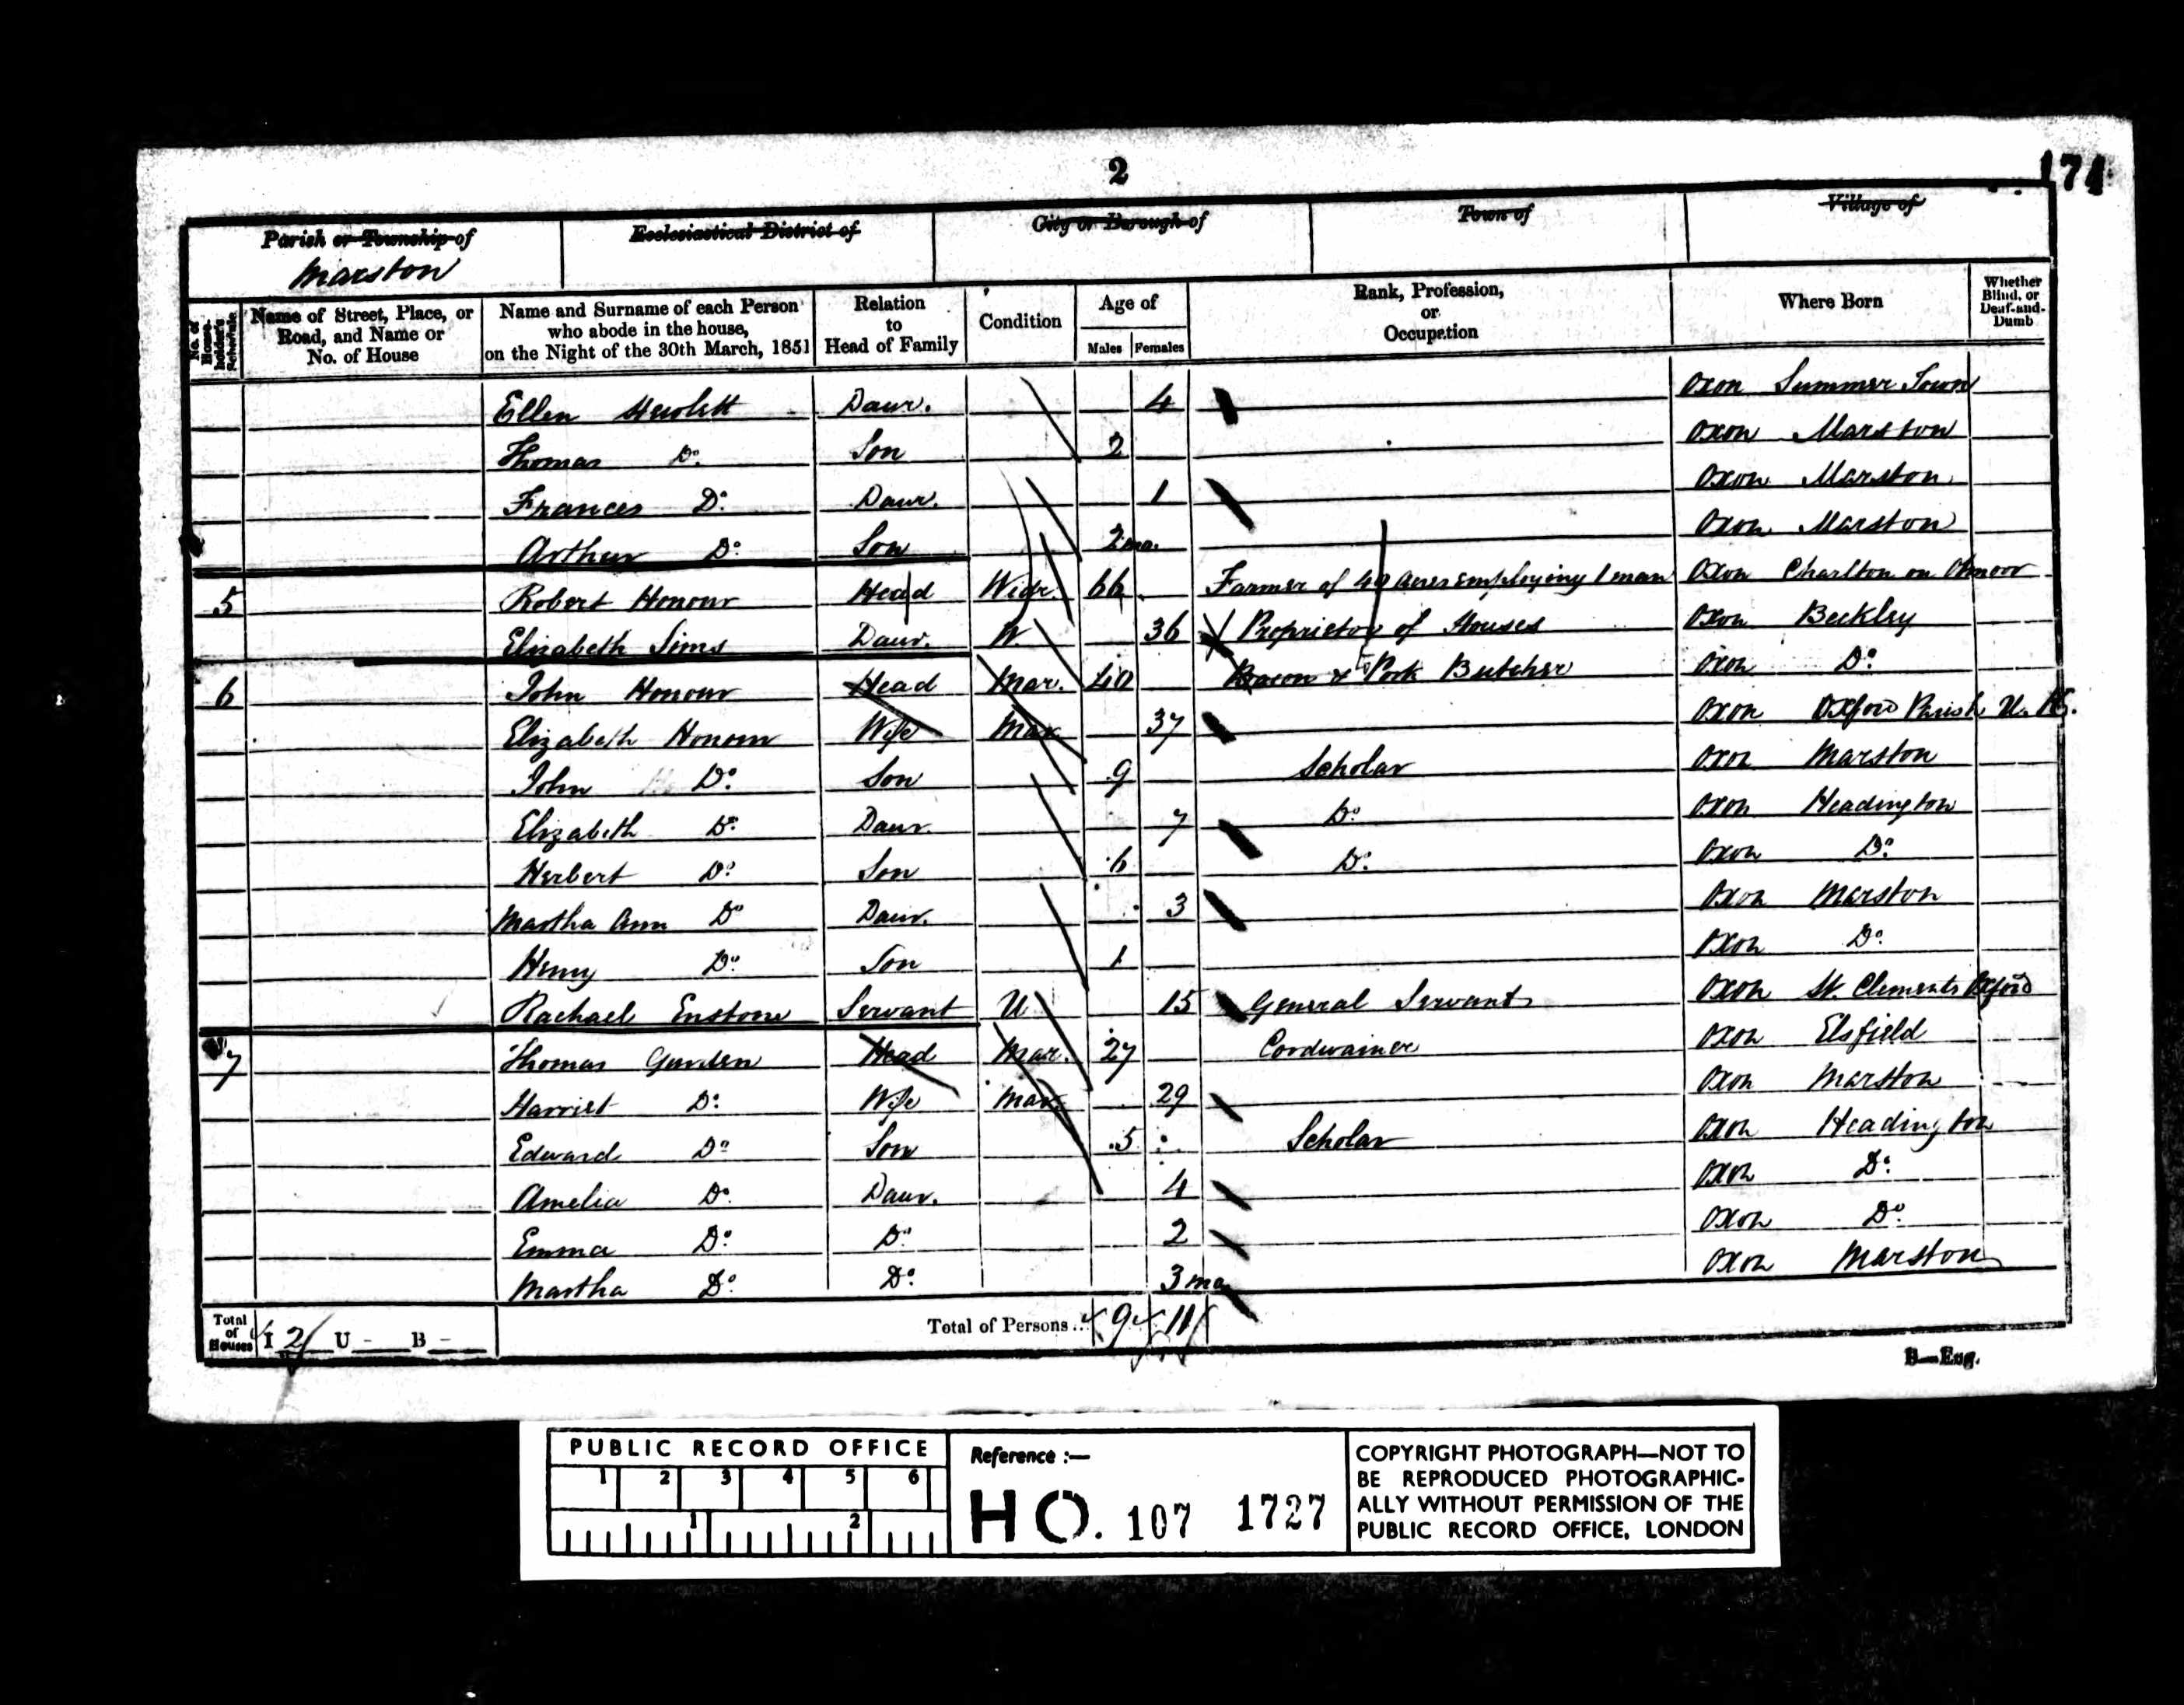 2
174
Parish or Township of
Ecclesiastical District of
City or Borough of
Town of
Village of
Marston
No. of Householder's Schedule
Name of Street, Place, or Road, and Name or No. of House
Name and Surname of each Person who abode in the house, on the Night of the 30th March, 1851
Relation to Head of Family
Condition
Age of
Males
Females
Rank, Profession, or Occupation
Where Born
Whether Blind, or Deaf-and-Dumb
Ellen Hewlett Daur. 4 Oxon Summer Town
Thomas Do. Son 2 Oxon Marston
Frances Do. Daur. 1 Oxon Marston
Arthur Do. Son 2 mo. Oxon Marston
5 Robert Honour Head Widr. 66 Farmer of 49 Acres employing 1 man Oxon Charlton on Otmoor
Elizabeth Sims Daur. W. 36 Proprietor of Houses Oxon Beckley
6 John Honour Head Mar. 40 Bacon & Pork Butcher Oxon Do.
Elizabeth Honour Wife Mar. 37 Oxon Oxford Parish U. K.
John Do. Son 9 Scholar Oxon Marston
Elizabeth Do. Daur. 7 Do. Oxon Headington
Herbert Do. Son 6 Do. Oxon Do.
Martha Ann Do. Daur. 3 Oxon Marston
Henry Do. Son 1 Oxon Do.
Rachael Enstone Servant U 15 General Servant Oxon St. Clements Oxford
7 Thomas Gurden Head Mar. 27 Cordwainer Oxon Elsfield
Harriet Do. Wife Mar. 29 Oxon Marston
Edward Do. Son 5 Scholar Oxon Headington
Amelia Do. Daur. 4 Oxon Do.
Emma Do. Do. 2 Oxon Do.
Martha Do. Do. 3 mo Oxon Marston
Total of Houses I 2 U - B - Total of Persons... 9 11
B—Eng.
PUBLIC RECORD OFFICE
1 2 3 4 5 6
1 2
Reference :—
HO. 107 1727
COPYRIGHT PHOTOGRAPH—NOT TO
BE REPRODUCED PHOTOGRAPHIC-
ALLY WITHOUT PERMISSION OF THE
PUBLIC RECORD OFFICE, LONDON